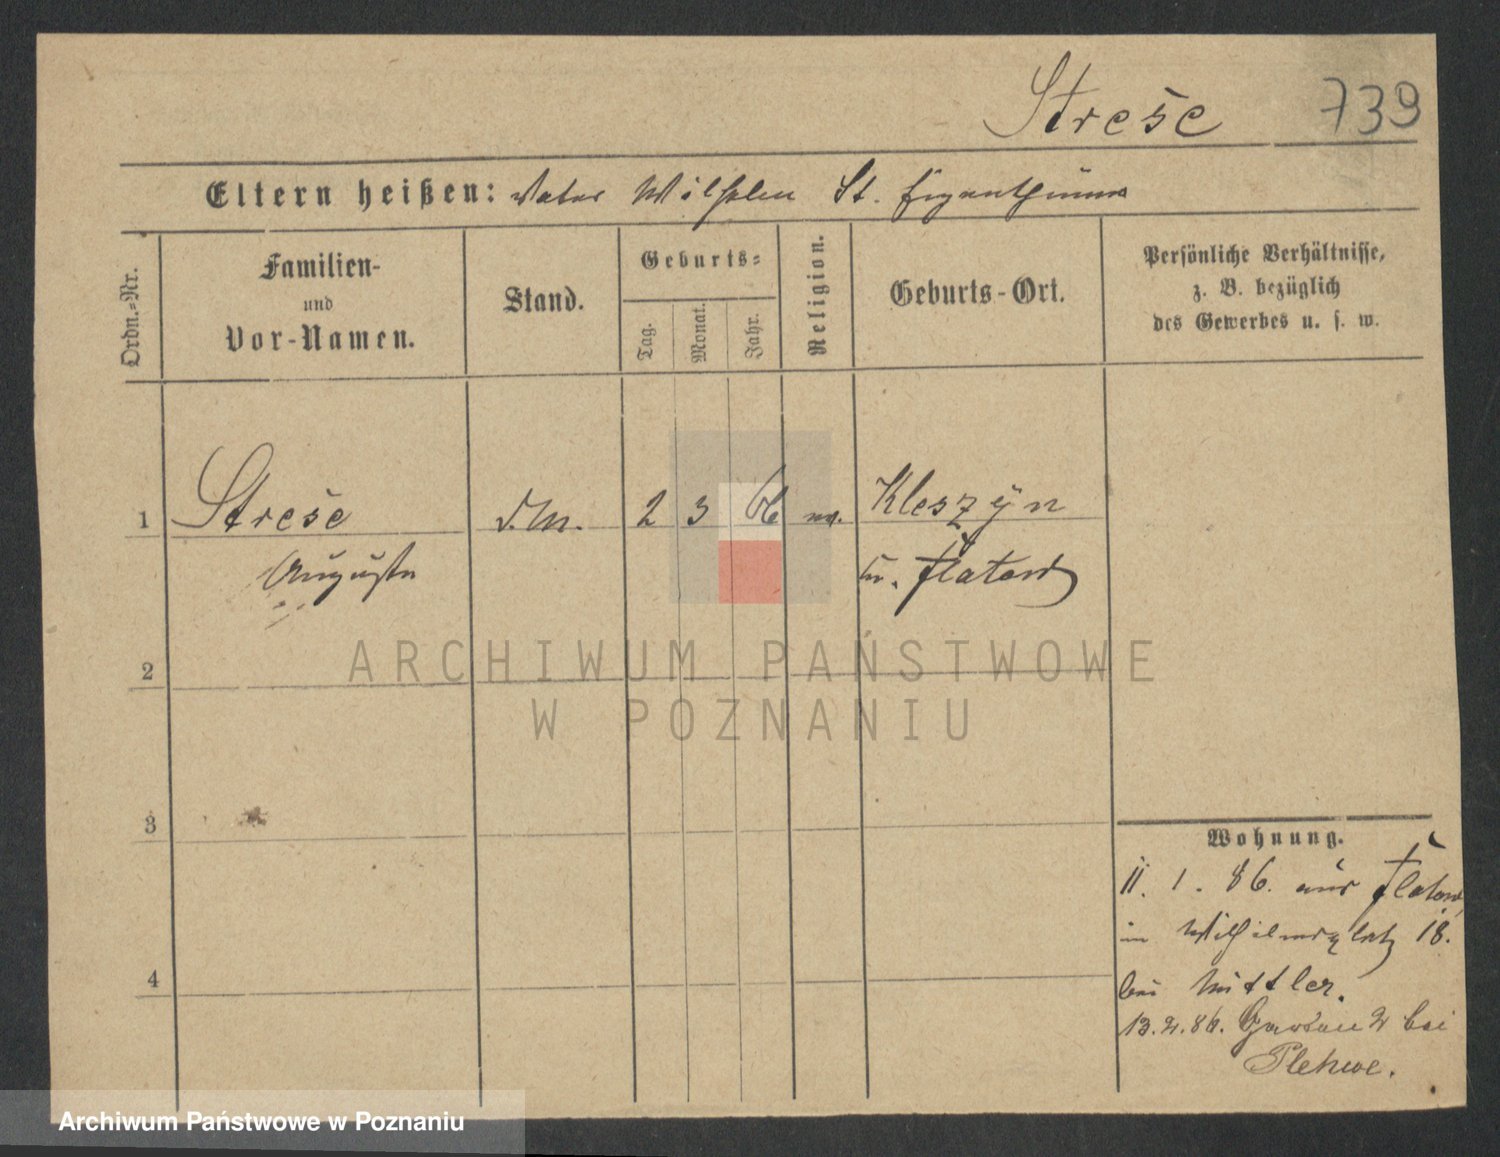 Strese 739
Eltern heißen: Vater Wilhelm St. Eigenthümer
Ordn.-Nr.
Familien-
und
Vor-Namen.
Stand.
Geburts-
Tag.
Monat.
Jahr.
Religion.
Geburts-Ort.
Persönliche Verhältnisse,
z. B. bezüglich
des Gewerbes u. s. w.
1 Strese D.M. 2 3 66 ev. Kleszyn
Auguste Kr. Flatow
2
3
4
Wohnung.
11. 1. 86. aus Flatow,
Wilhelmsplatz 18.
bei Mittler.
13. 2. 86. 2 bei
Plehwe.
ARCHIWUM PAŃSTWOWE
W POZNANIU
Archiwum Państwowe w Poznaniu